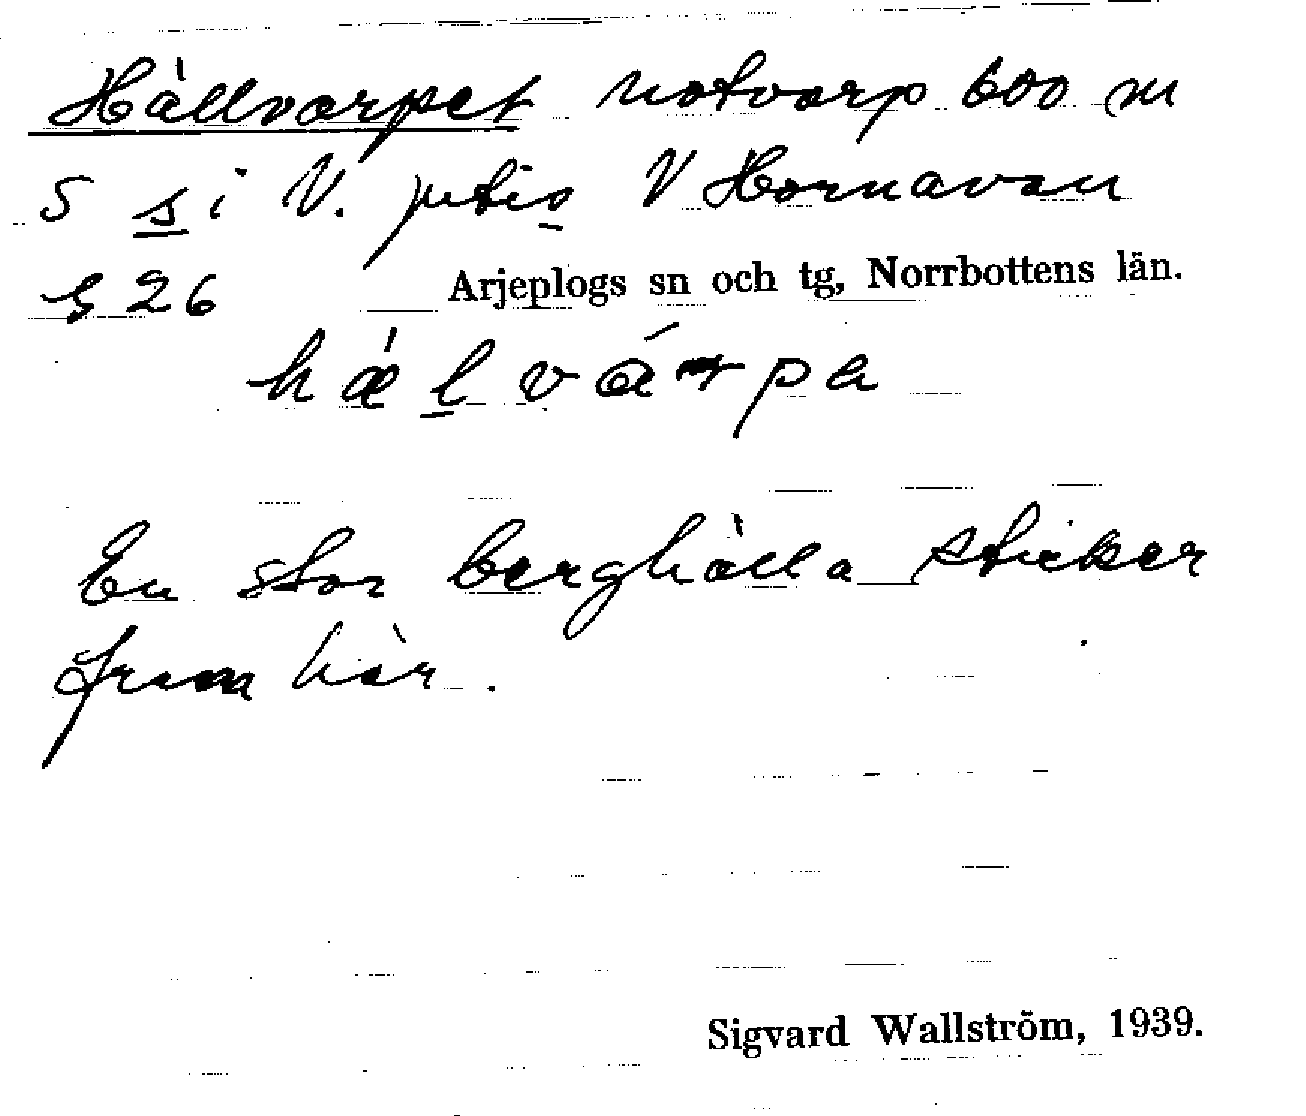 Hällvarpet notvarp 600 m
S s i V. jutis V Hornavan
G 26 Arjeplogs sn och tg, Norrbottens län.
hæl várpa
En stor berghälla sticker
fram här.
Sigvard Wallström, 1939.